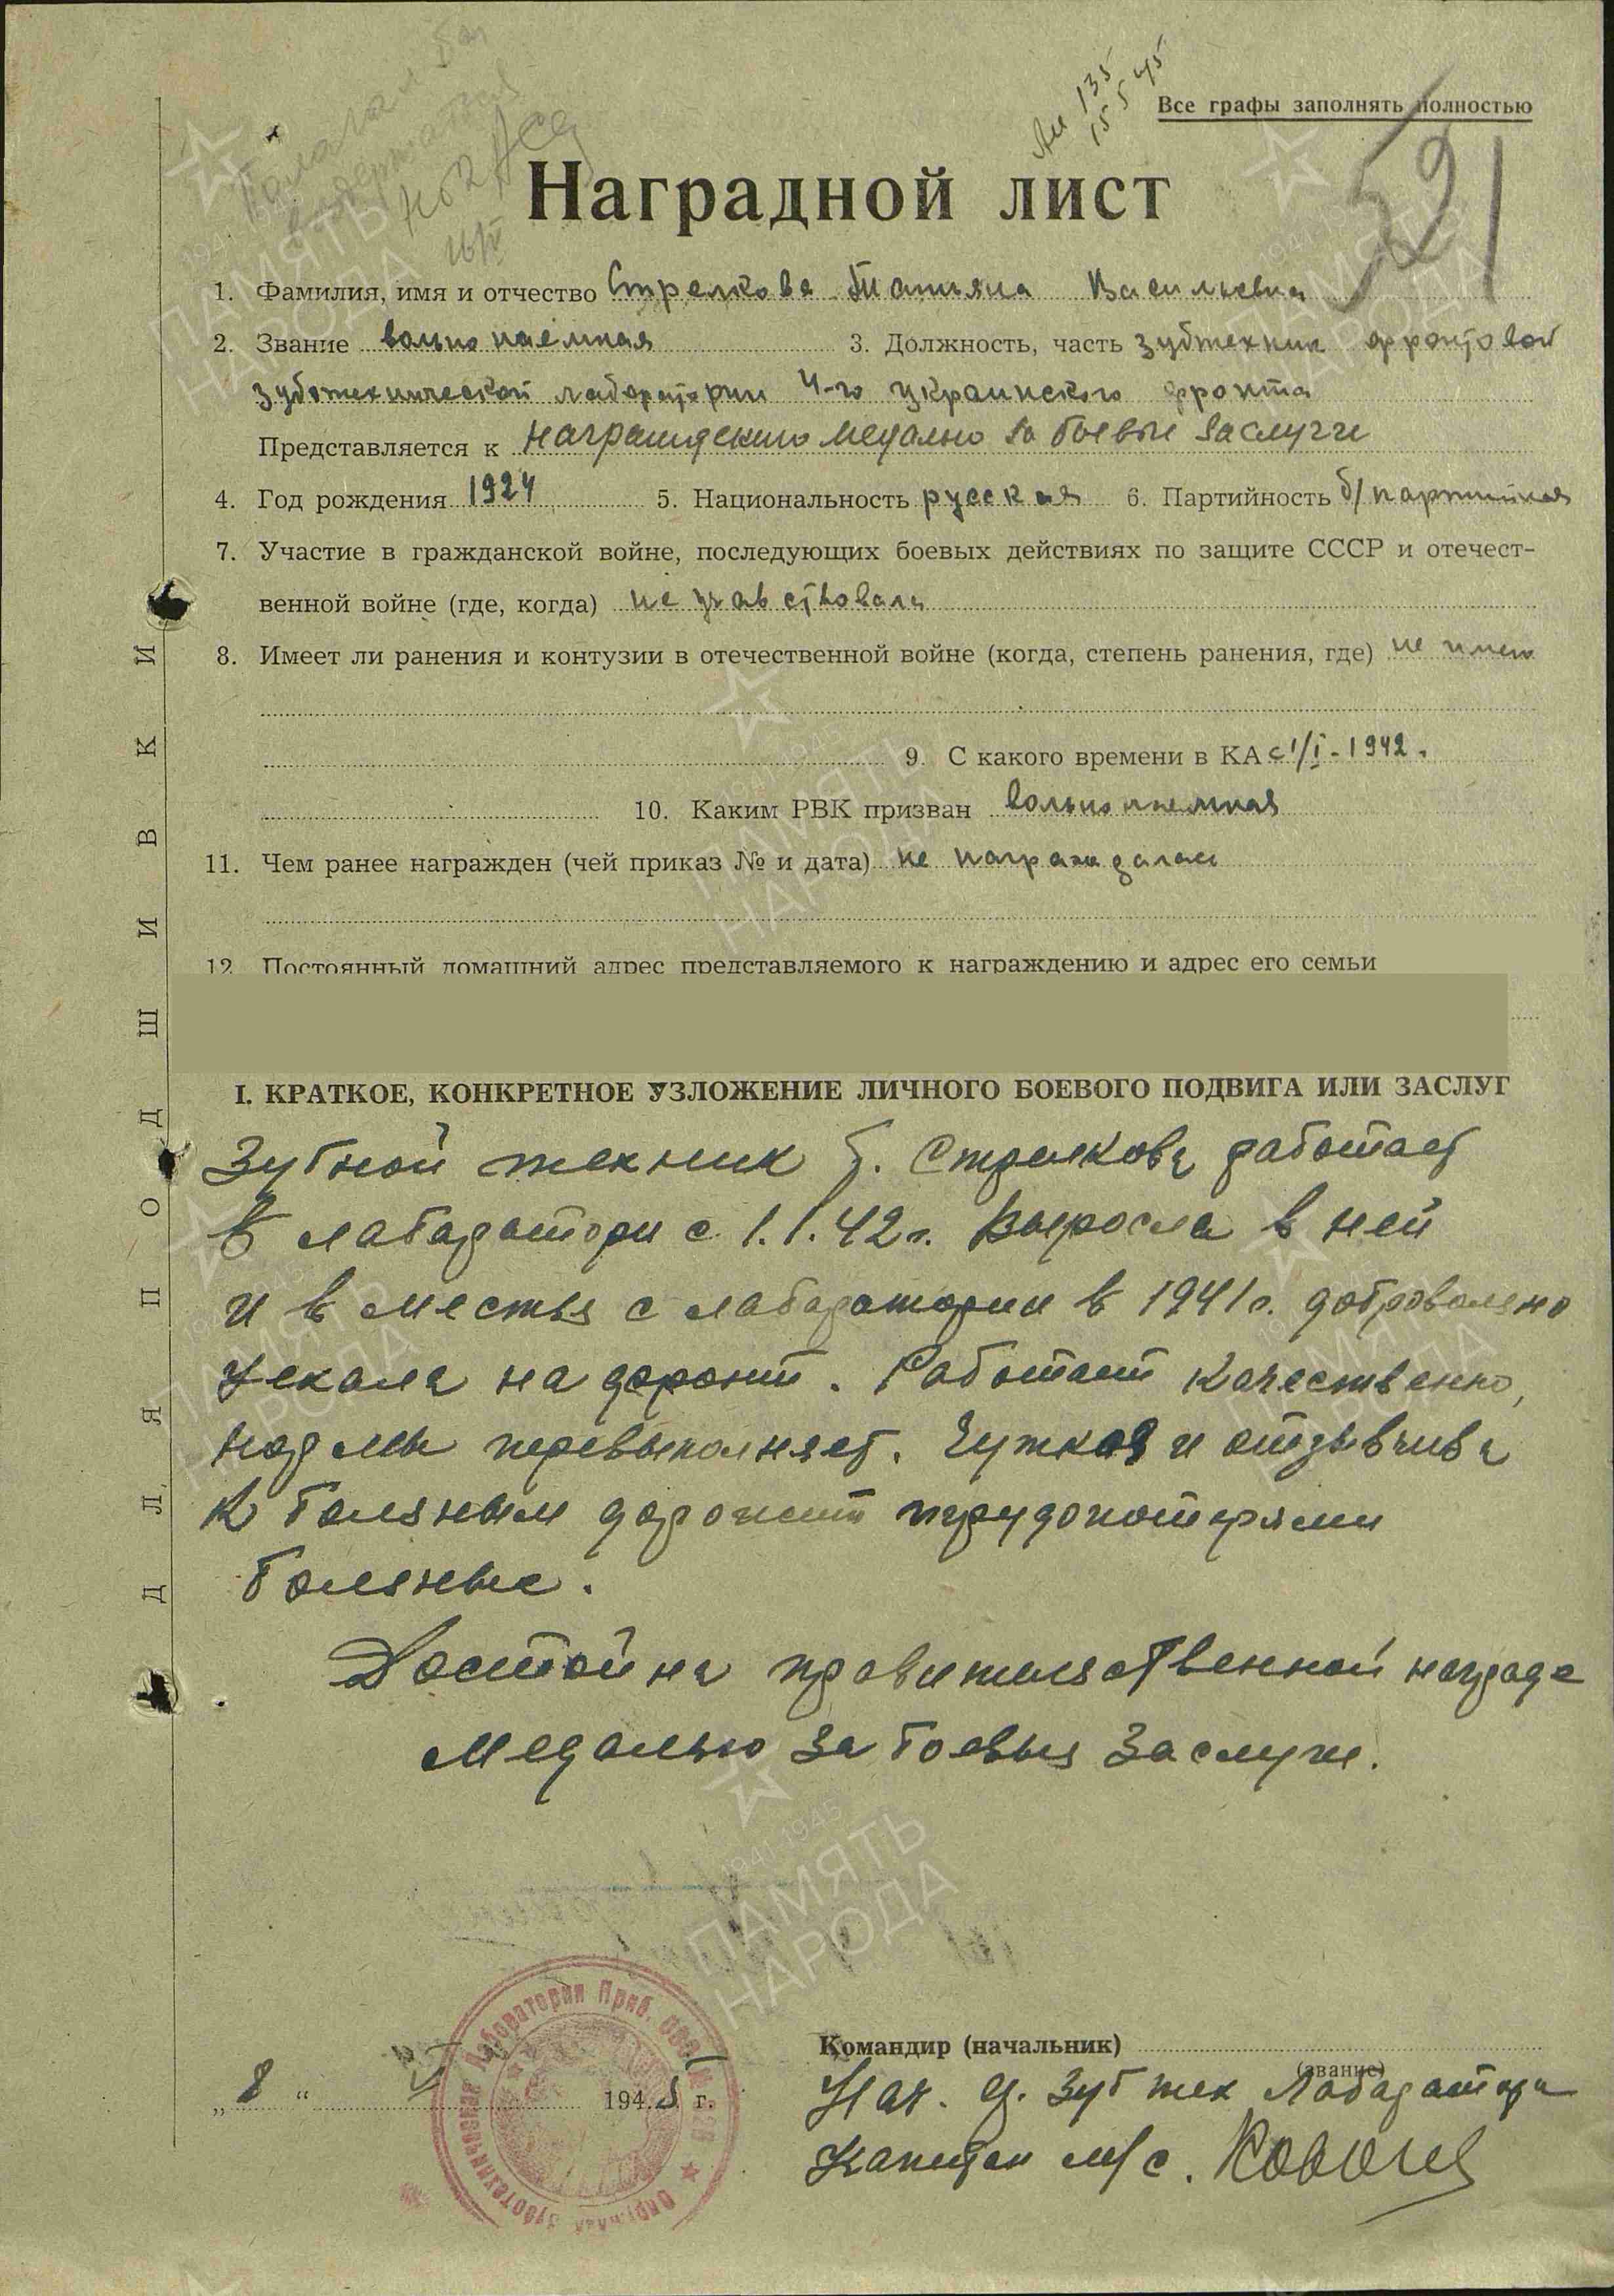 135
15 5 45
Все графы заполнять полностью
521
Наградной лист
1. Фамилия, имя и отчество Стрелкова Татьяна Васильевна
2. Звание вольнонаёмная 3. Должность, часть зубтехник фронтовой
зуботехнической лаборатории 4-го украинского фронта
Представляется к награждению медалью за боевые заслуги
4. Год рождения 1924 5. Национальность русская 6. Партийность б/партийная
7. Участие в гражданской войне, последующих боевых действиях по защите СССР и отечест-
венной войне (где, когда) не участвовала
8. Имеет ли ранения и контузии в отечественной войне (когда, степень ранения, где) не имеет
9. С какого времени в КА с 1/I-1942.
10. Каким РВК призван вольнонаемная
11. Чем ранее награжден (чей приказ № и дата) не награждалась
12 Постоянный домашний адрес представляемого к награждению и адрес его семьи
I. КРАТКОЕ, КОНКРЕТНОЕ УЗЛОЖЕНИЕ ЛИЧНОГО БОЕВОГО ПОДВИГА ИЛИ ЗАСЛУГ
Зубной техник т. Стрелкова работает
в лабаратори с 1.1.42г. Выросла в ней
и в местья с лабаратории в 1941г. добровольно
уехала на фронт. Работает качественно,
нормы перевыполняет. Чуткая и отзывчива
к больным дорожит трудопотерями
больных.
Достойна правительственной награде
медалью за боевыя заслуги.
Командир (начальник)
(звание)
„ 8 “ V 1945 г.
Нач. ф. зуб тех Лабаратори
Капитан м/с.
Окружная Зуботехническая Лаборатория Прик. ВО
ДЛЯ ПОДШИВКИ
1941-1945
ПАМЯТЬ
НАРОДА